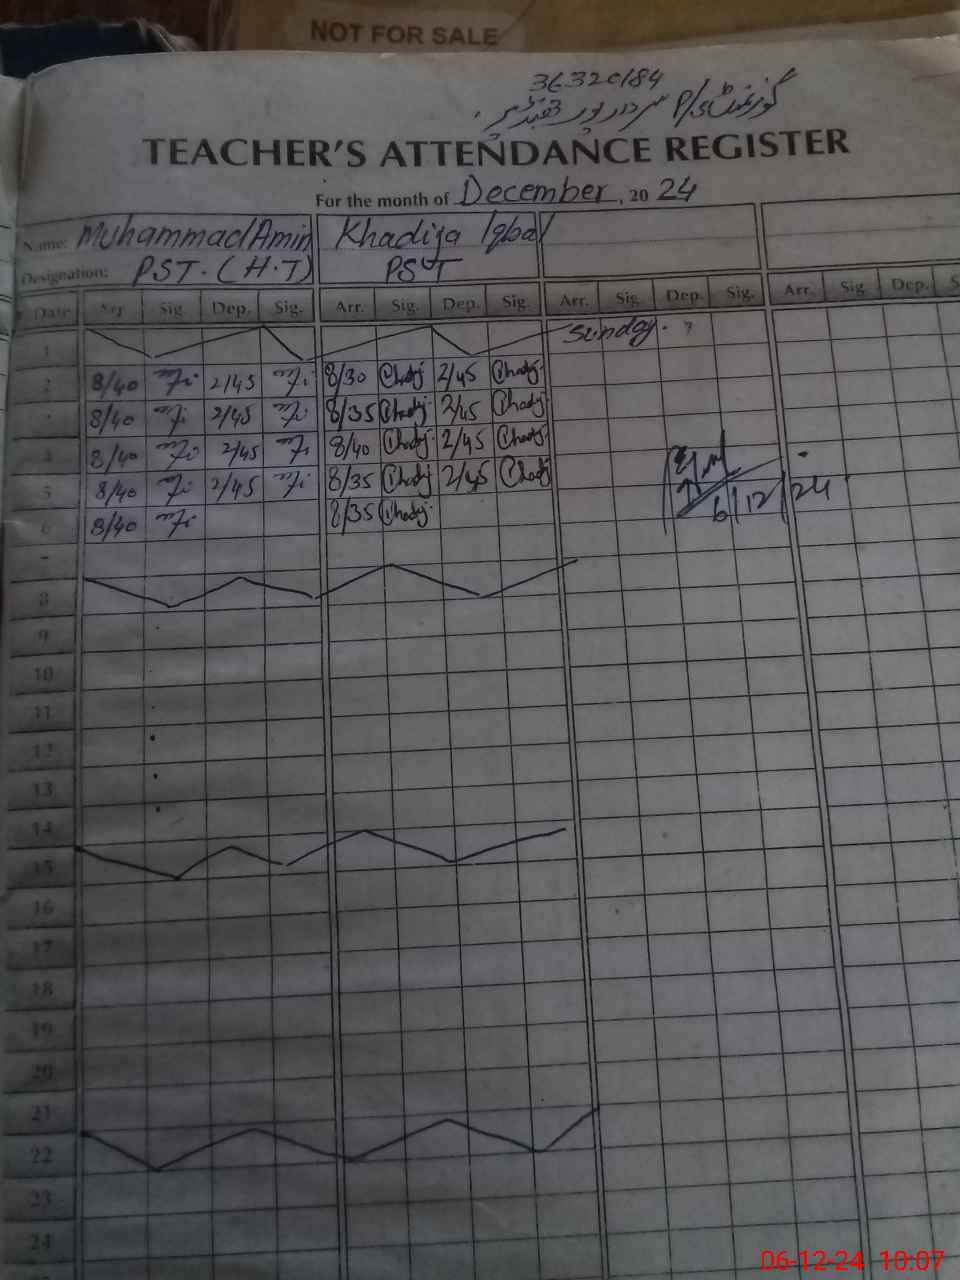 NOT FOR SALE
36320184
گورنمنٹ P/S سردار پور
TEACHER'S ATTENDANCE REGISTER
For the month of December, 2024
Name: Muhammad Amin Khadija Iqbal
Designation: PST. (H.T) PST
Date Arr Sig Dep. Sig. Arr. Sig. Dep. Sig. Arr. Sig. Dep. Sig. Arr. Sig Dep. S
1 Sunday.
2 8/40 2/45 8/30 Khadij 2/45 Khadij
8/40 2/45 8/35 Khadij 2/45 Khadij
4 8/40 2/45 8/40 Khadij 2/45 Khadij
5 8/40 2/45 8/35 Khadij 2/45 Khadij
6 8/40 8/35 Khadij
6/12/24
8
9
10
11
12
13
14
15
16
17
18
19
20
21
22
23
24
06-12-24 10:07